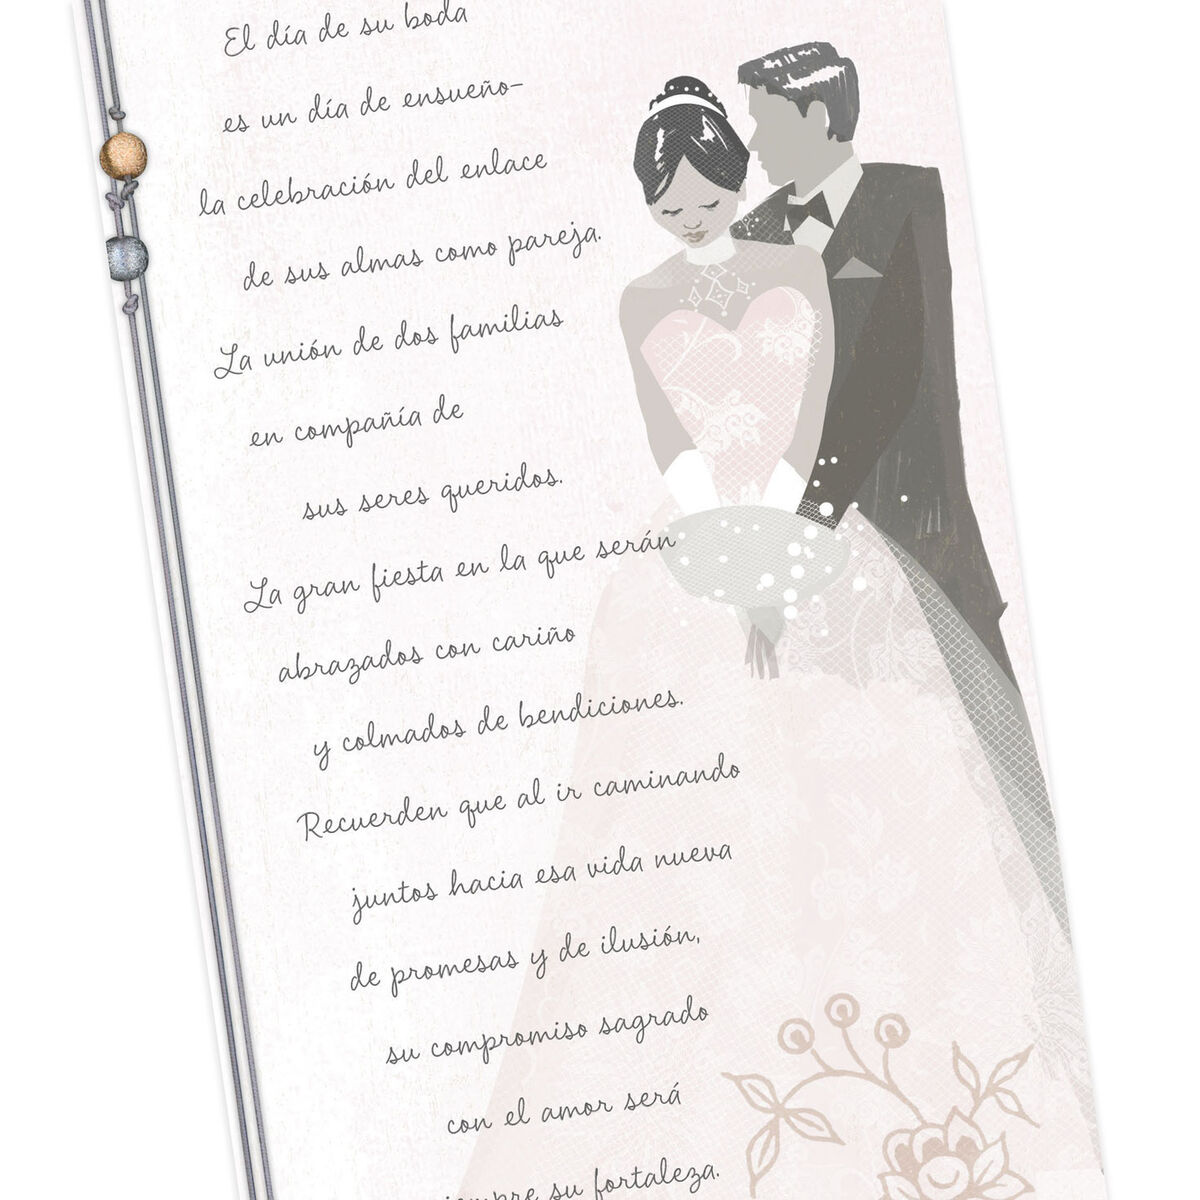 El día de su boda
es un día de ensueño–
la celebración del enlace
de sus almas como pareja.
La unión de dos familias
en compañía de
sus seres queridos.
La gran fiesta en la que serán
abrazados con cariño
y colmados de bendiciones.
Recuerden que al ir caminando
juntos hacia esa vida nueva
de promesas y de ilusión,
su compromiso sagrado
con el amor será
su fortaleza.